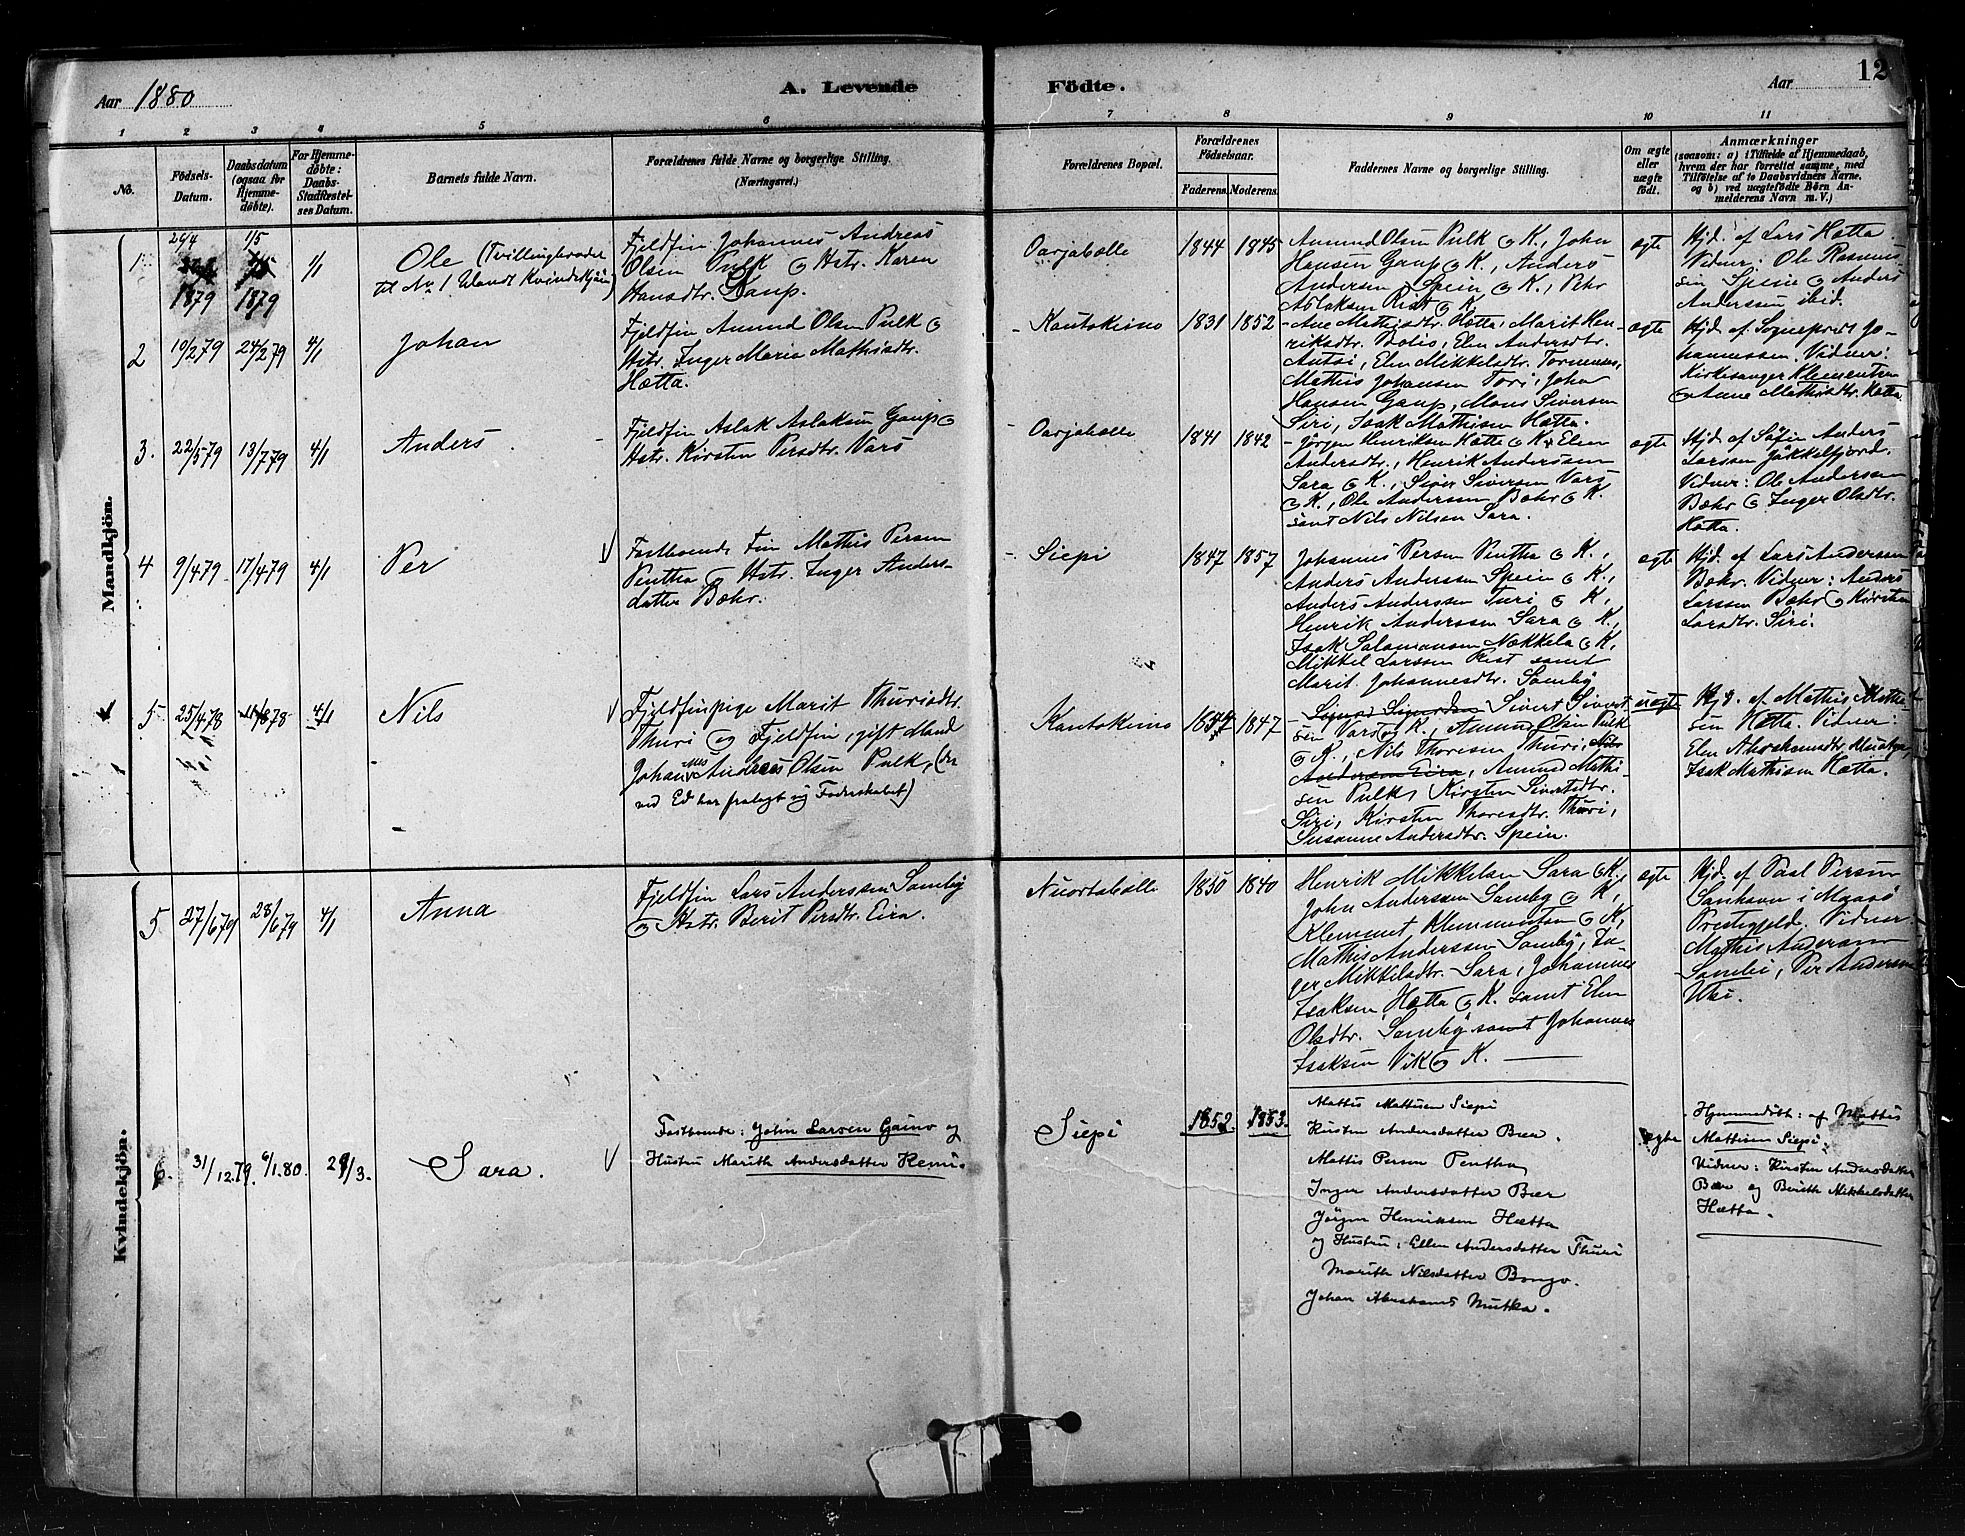 Aar 1880
A. Levende
Födte.
Aar
12
1 2 3 4 5 6 7 8 9 10 11
No.
Födsels-
Datum.
Daabsdatum
(ogsaa for
Hjemme-
döbte).
For Hjemme-
döbte:
Daabs-
Stadfæstel-
ses Datum.
Barnets fulde Navn.
Forældrenes fulde Navne og borgerlige Stilling.
(Næringsvei.)
Forældrenes Bopæl.
Forældrenes
Födselsaar.
Faderens. Moderens.
Faddernes Navne og borgerlige Stilling.
Om ægte
eller
uægte
födt.
Anmærkninger
(saasom: a) i Tilfælde af Hjemmedaab,
hvem der har forrettet samme, med
Tilföielse af to Daabsvidners Navne.
og b) ved uægtefödte Börn An-
melderens Navn m. V.)
Mandkjön.
1
26/4
1879
1/5
1879
1/1
Ole (Tvillingbroder
til No 1 blandt Kvindekjön)
Fjeldfin Johannes Andreas
Olsen Pulk & Hstr. Karen
Hansdtr. Gaup.
Oarjabælle
1844 1845
Amund Olsen Pulk & K., John
Hansen Gaup & K., Anders
Andersen Spein & K., Pehr
Aslaksen Rist & K.
ægte
Hjd. af Lars Hætta
Vidner: Ole Rasmus-
sen Spein & Anders
Anderssen ibid.
2
10/2 79
24/2 79
4/1
Johan
Fjeldfin Amund Olsen Pulk &
Hstr. Inger Maria Mathisdtr.
Hætta.
Kautokeino
1831 1852
Ane Mathisdtr. Hætta, Marit Hen-
riksdtr. Bolio, Elen Andersdtr.
Autsi, Elen Mikkelsdtr. Torneus,
Mathis Johansen Tori, John
Hansen Gaup, Mons Siversen
Siri, Isak Mathisen Hætta.
ægte
Hjd. af Sognepræst Jo-
hannessen. Vidner:
Kirkesanger Klementsen
& Anne Mathisdtr. Hætta.
3.
22/5 79
13/7 79
4/1
Anders
Fjeldfin Aslak Aslaksen Gaup &
Hstr. Kirsten Persdtr. Vars
Oarjabælle
1841 1842
Jørgen Henriksen Hætta & K. Elen
Andersdtr., Henrik Anderssen
Sara & K., Siver Siversen Vars
& K., Ole Anderssen Bæhr & K.
samt Nils Nilsen Sara.
ægte
Hjd. af Søfin Anders
Larssen Jökkelfjord.
Vidner: Ole Anderssen
Bæhr & Inger Olsdtr.
Hætta
4
9/4 79
17/4 79
4/1
Per
Fastboende Fin Mathis Persen
Pentha & Hstr. Inger Anders-
datter Bæhr.
Siepi
1847 1857
Johannes Persen Pentha & K.,
Anders Anderssen Spein & K.,
Anders Anderssen Turi & K,
Henrik Anderssen Sara & K.,
Isak Salamonsen Nækkela & K,
Mikkel Larssen Rist samt
Marit Johannesdtr. Somby
ægte
Hjd. af Lars Anderssen
Bæhr. Vidner: Anders
Larssen Bæhr & Kirsten
Larsdtr. Siri.
5
25/4 78
4/1
Nils
Fjeldfinpige Marit Thurisdtr.
Thuri og Fjeldfin, gift Mand
Johannes Andreas Olsen Pulk, (der
ved Ed har fralagt sig Faderskabet)
Kautokeino
1847
Sivert Sivert-
sen Vars & K., Amund Olsen Pulk
& K., Nils Thoresen Thuri, Nils
Andersen Eira, Amund Mathi-
sen Pulk, Kirsten Sivertsdtr.
Siri, Kirsten Thoresdtr. Thuri,
Susanne Andersdtr. Spein.
uægte
Hjd. af Mathis Mathi-
sen Hætta. Vidner:
Elen Abrahamsdtr.
Isak Mathisen Hætta.
Kvindekjön.
5
27/6 79
28/6 79
4/1
Anna
Fjeldfin Lars Anderssen Somby
& Hstr. Berit Persdtr. Eira.
Nuortabælle
1850 1840
Henrik Mikkelsen Sara & K.,
John Anderssen Somby & K,
Klemmet Klemmentsen & K,
Mathis Anderssen Somby, In-
ger Mikkelsdtr. Sara, Johannes
Isaksen Hætta & K. samt Elen
Olsdtr. Somby samt Johannes
Isaksen Vik & K.
ægte
Hjd. af Paal Persen
Sandhavn i Maasø
Prestegjeld. Vidner
Mathis Anderssen
Sombi, Per Andersen
Utsi.
6.
31/12.79.
6/1.80.
29/3.
Sara.
Fastboende: John Larsen Gaino og
Hustru Marith Andersdatter Kemi.
Siepi
1852. 1853.
Mattis Mattisen Siepi
Kirsten Andersdatter Bær.
Mattis Persen Pentha
Inger Andersdatter Bær
Jørgen Henriksen Hætta
og Hustru: Ellen Andersdatter Thuri
Marith Nilsdatter Bongo.
Johan Abrahams Mutka.
ægte
Hjemmedöbt: af Mattis
Mattisen Siepi.
Vidner: Kirsten Andersdatter
Bær og Berith Mikkelsdatter
Hætta.